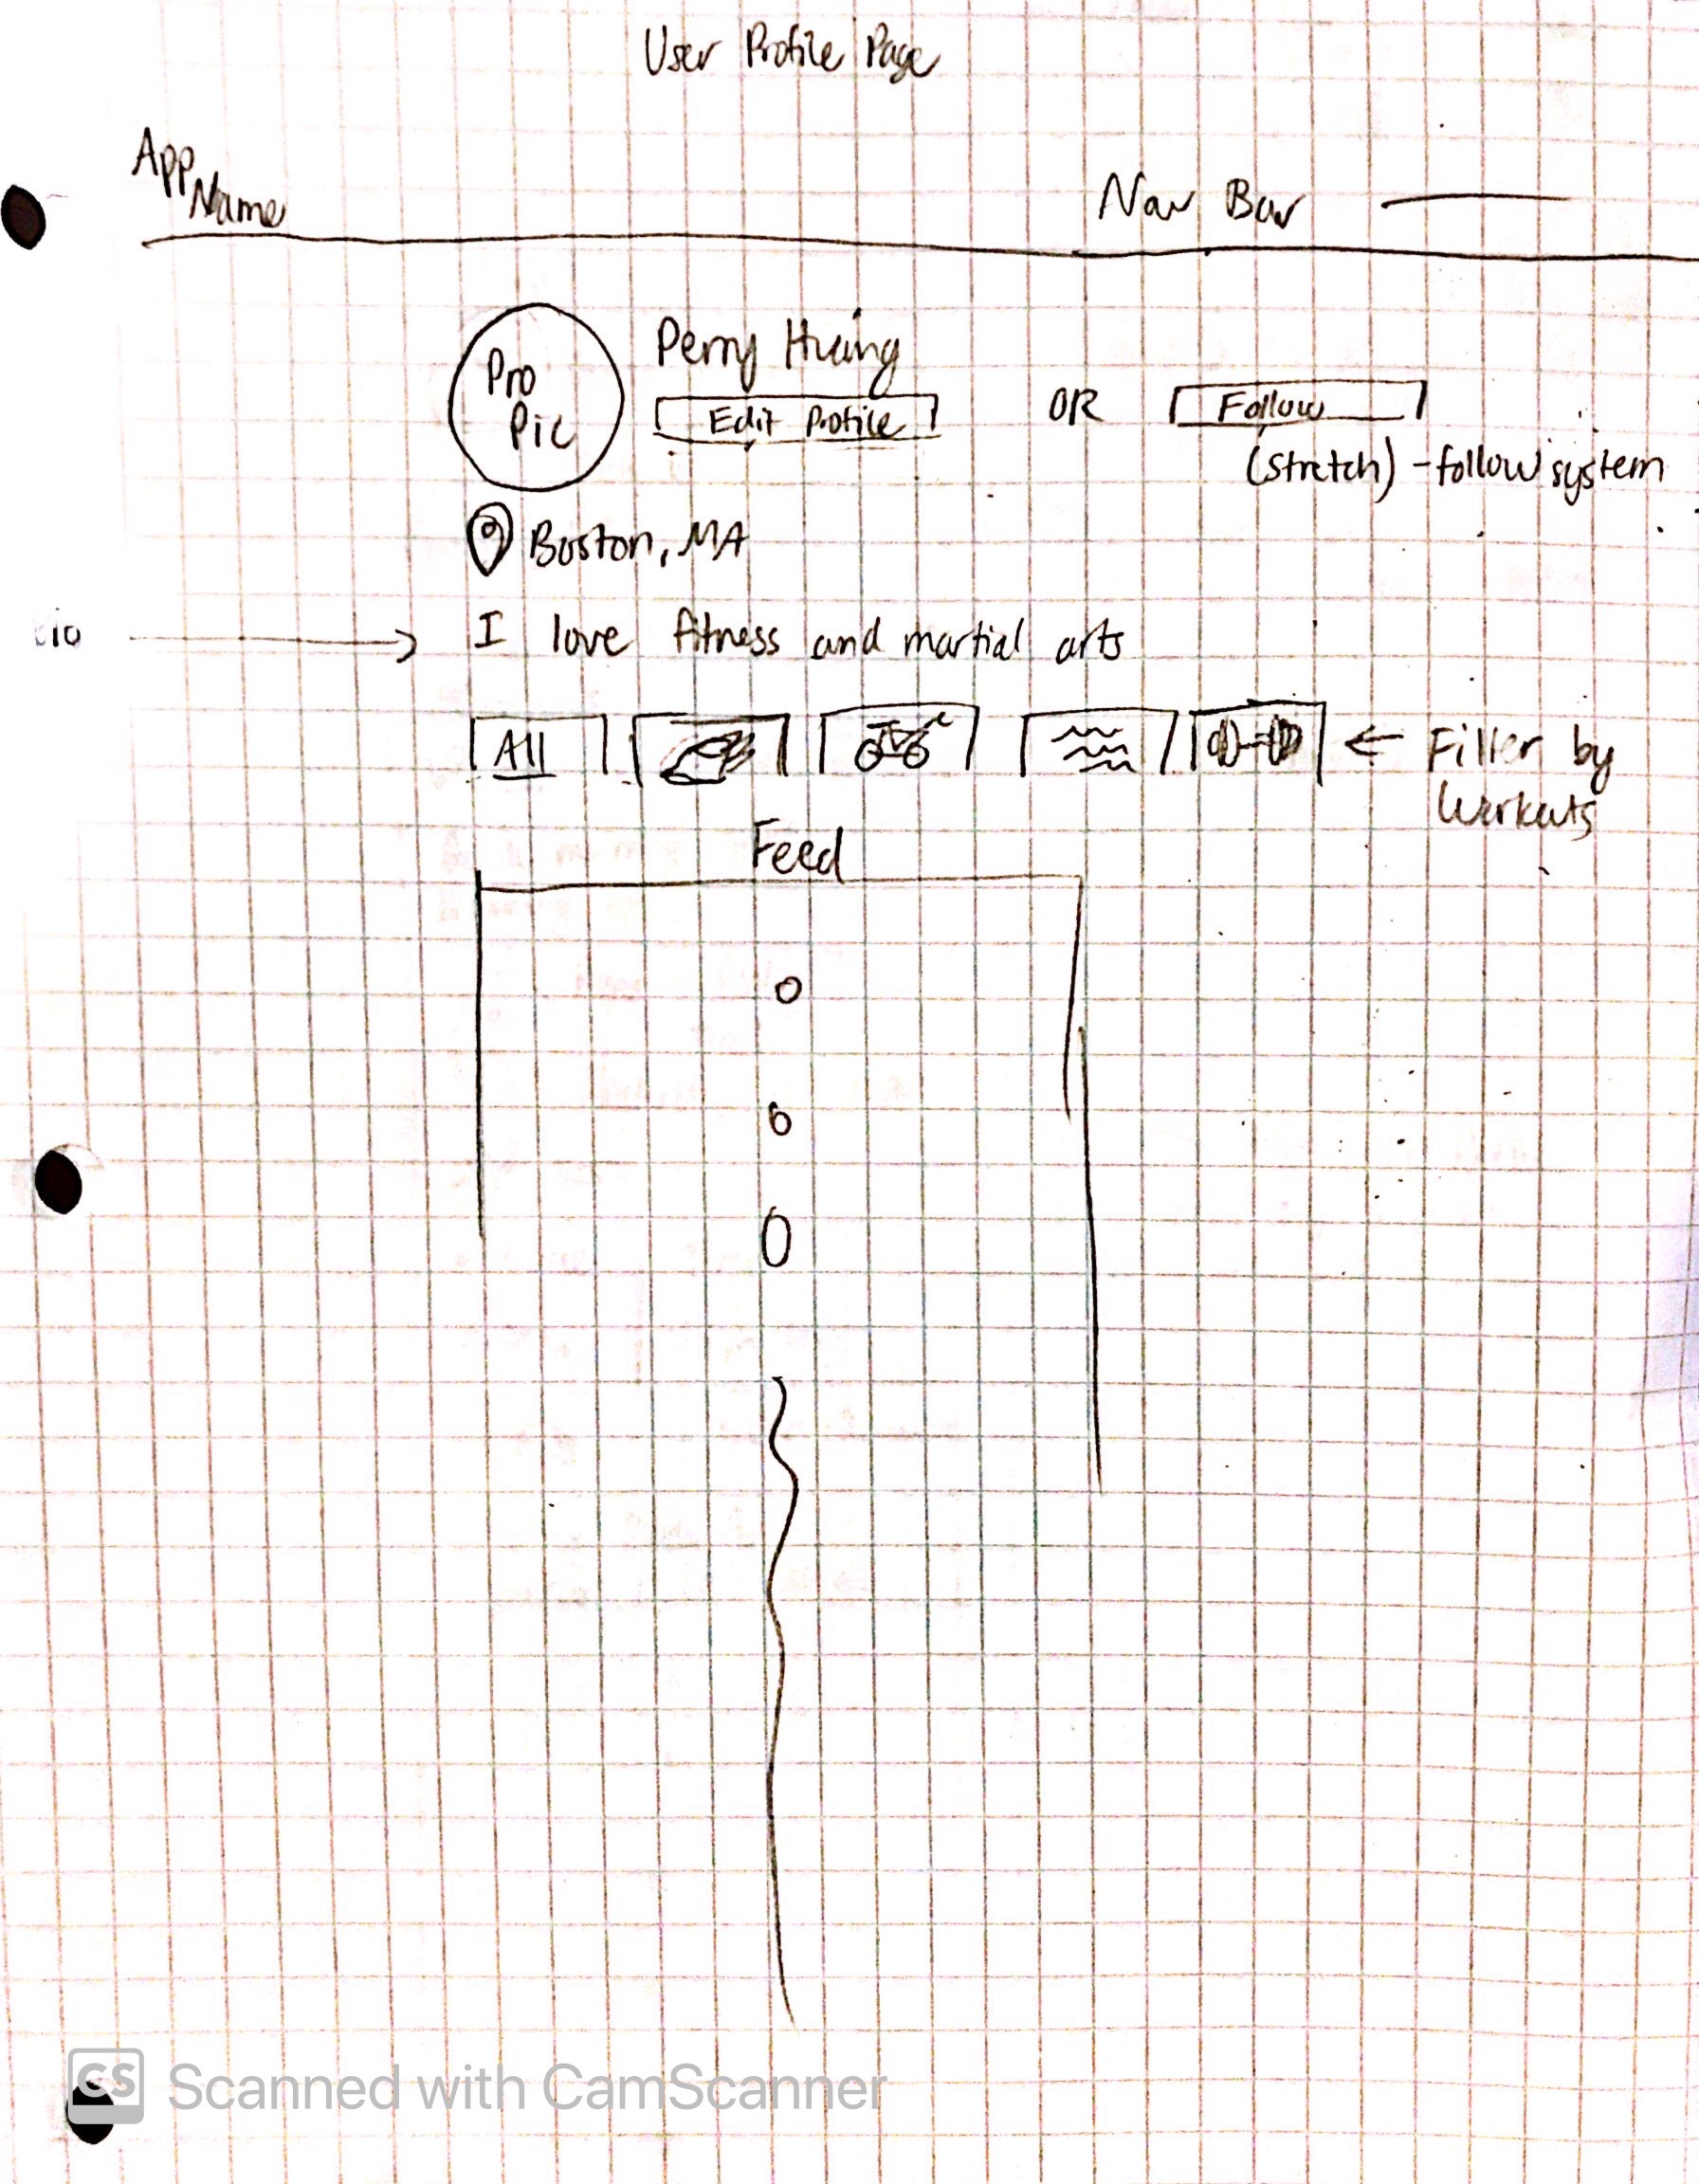 User Profile Page
App
Name
Nav Bar
Pro
Pic
Perry Huang
Edit Profile
OR
Follow
(stretch) - follow system
Boston, MA
I love fitness and martial arts
All
← Filter by
Workouts
Feed
CS Scanned with CamScanner